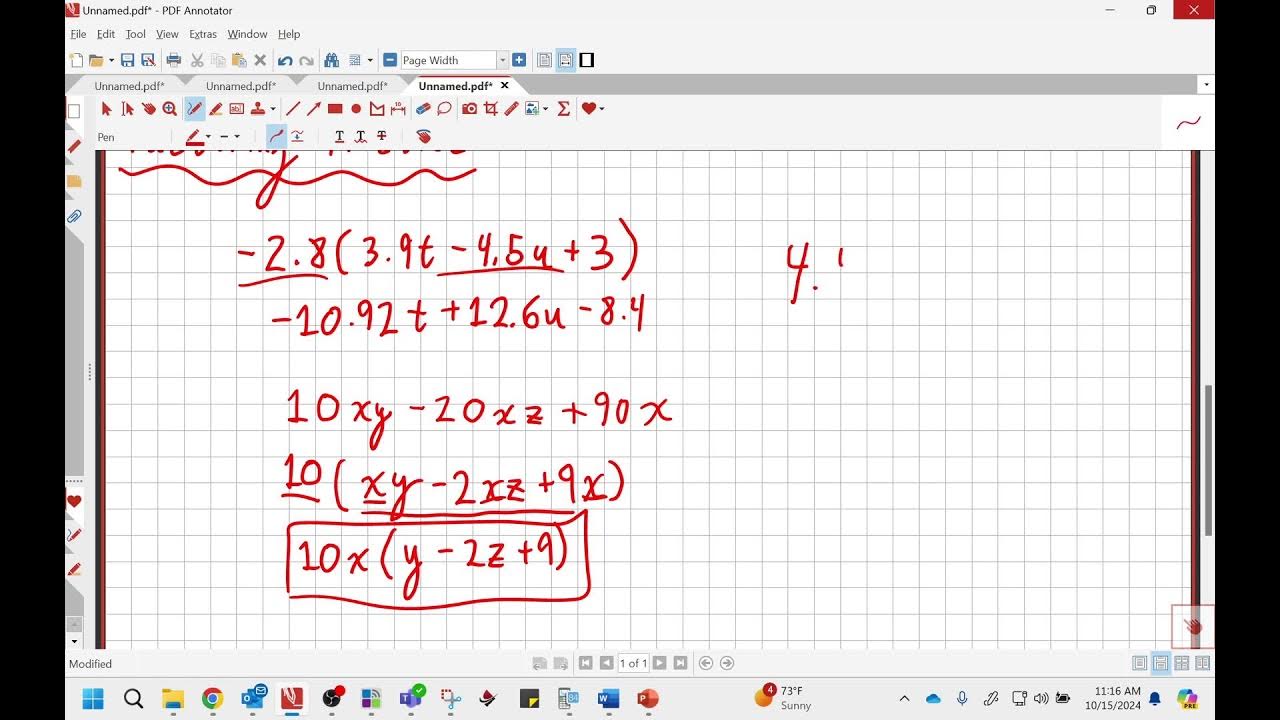 Unnamed.pdf* - PDF Annotator
File Edit Tool View Extras Window Help
Page Width
Unnamed.pdf* Unnamed.pdf* Unnamed.pdf* Unnamed.pdf*
Pen
-2.8(3.9t - 4.5u + 3)
-10.92t + 12.6u - 8.4
4.
10xy - 20xz + 90x
10(xy - 2xz + 9x)
10x(y - 2z + 9)
1 of 1
Modified
4
73°F
Sunny
11:16 AM
10/15/2024
PRE